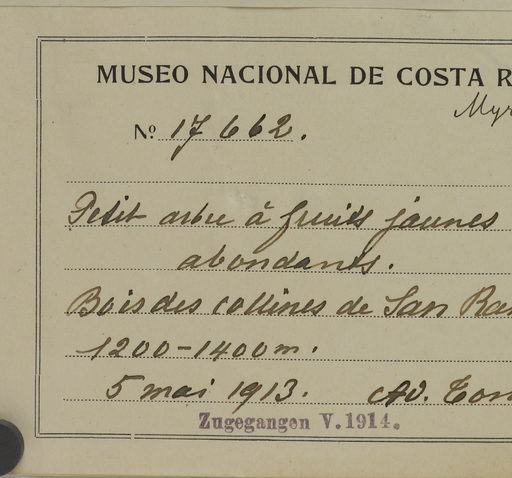 MUSEO NACIONAL DE COSTA R
Myr
Nº 17662.
Petit arbre à fruits jaunes
abondants.
Bois des collines de San Ra
1200-1400m.
5 mai 1913. Ad. Ton
Zugegangen V. 1914.